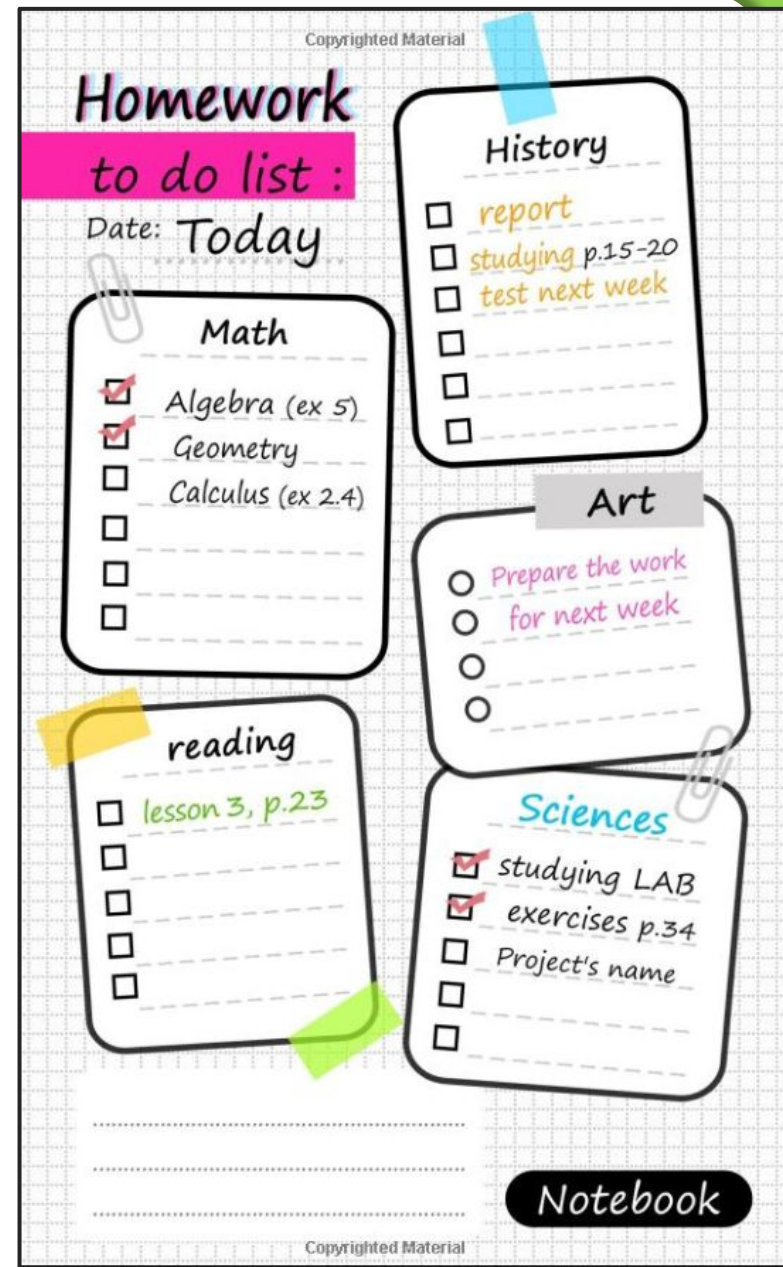 Copyrighted Material
Homework
to do list :
Date: Today
Math
Algebra (ex 5)
Geometry
Calculus (ex 2.4)
reading
lesson 3, p.23
History
report
studying p.15-20
test next week
Art
Prepare the work
for next week
Sciences
studying LAB
exercises p.34
Project's name
Notebook
Copyrighted Material